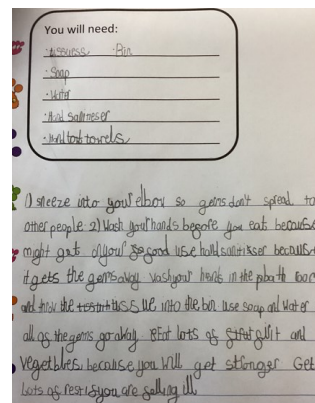 You will need:
·tissuess ·Bin
·Soap
·Water
·Hand
·Hand towels
1) sneeze into your elbow so gems don't spread to
other people 2) Wash your hands before you eat because
might get on your food use hand because
it gets the gems away wash your hands in the bath room
and throw the tissue into the bin use soap and water
all of the gems go away Eat lots of and
vegetbles because you will get stronger Get
Lots of rest if you are felling ill